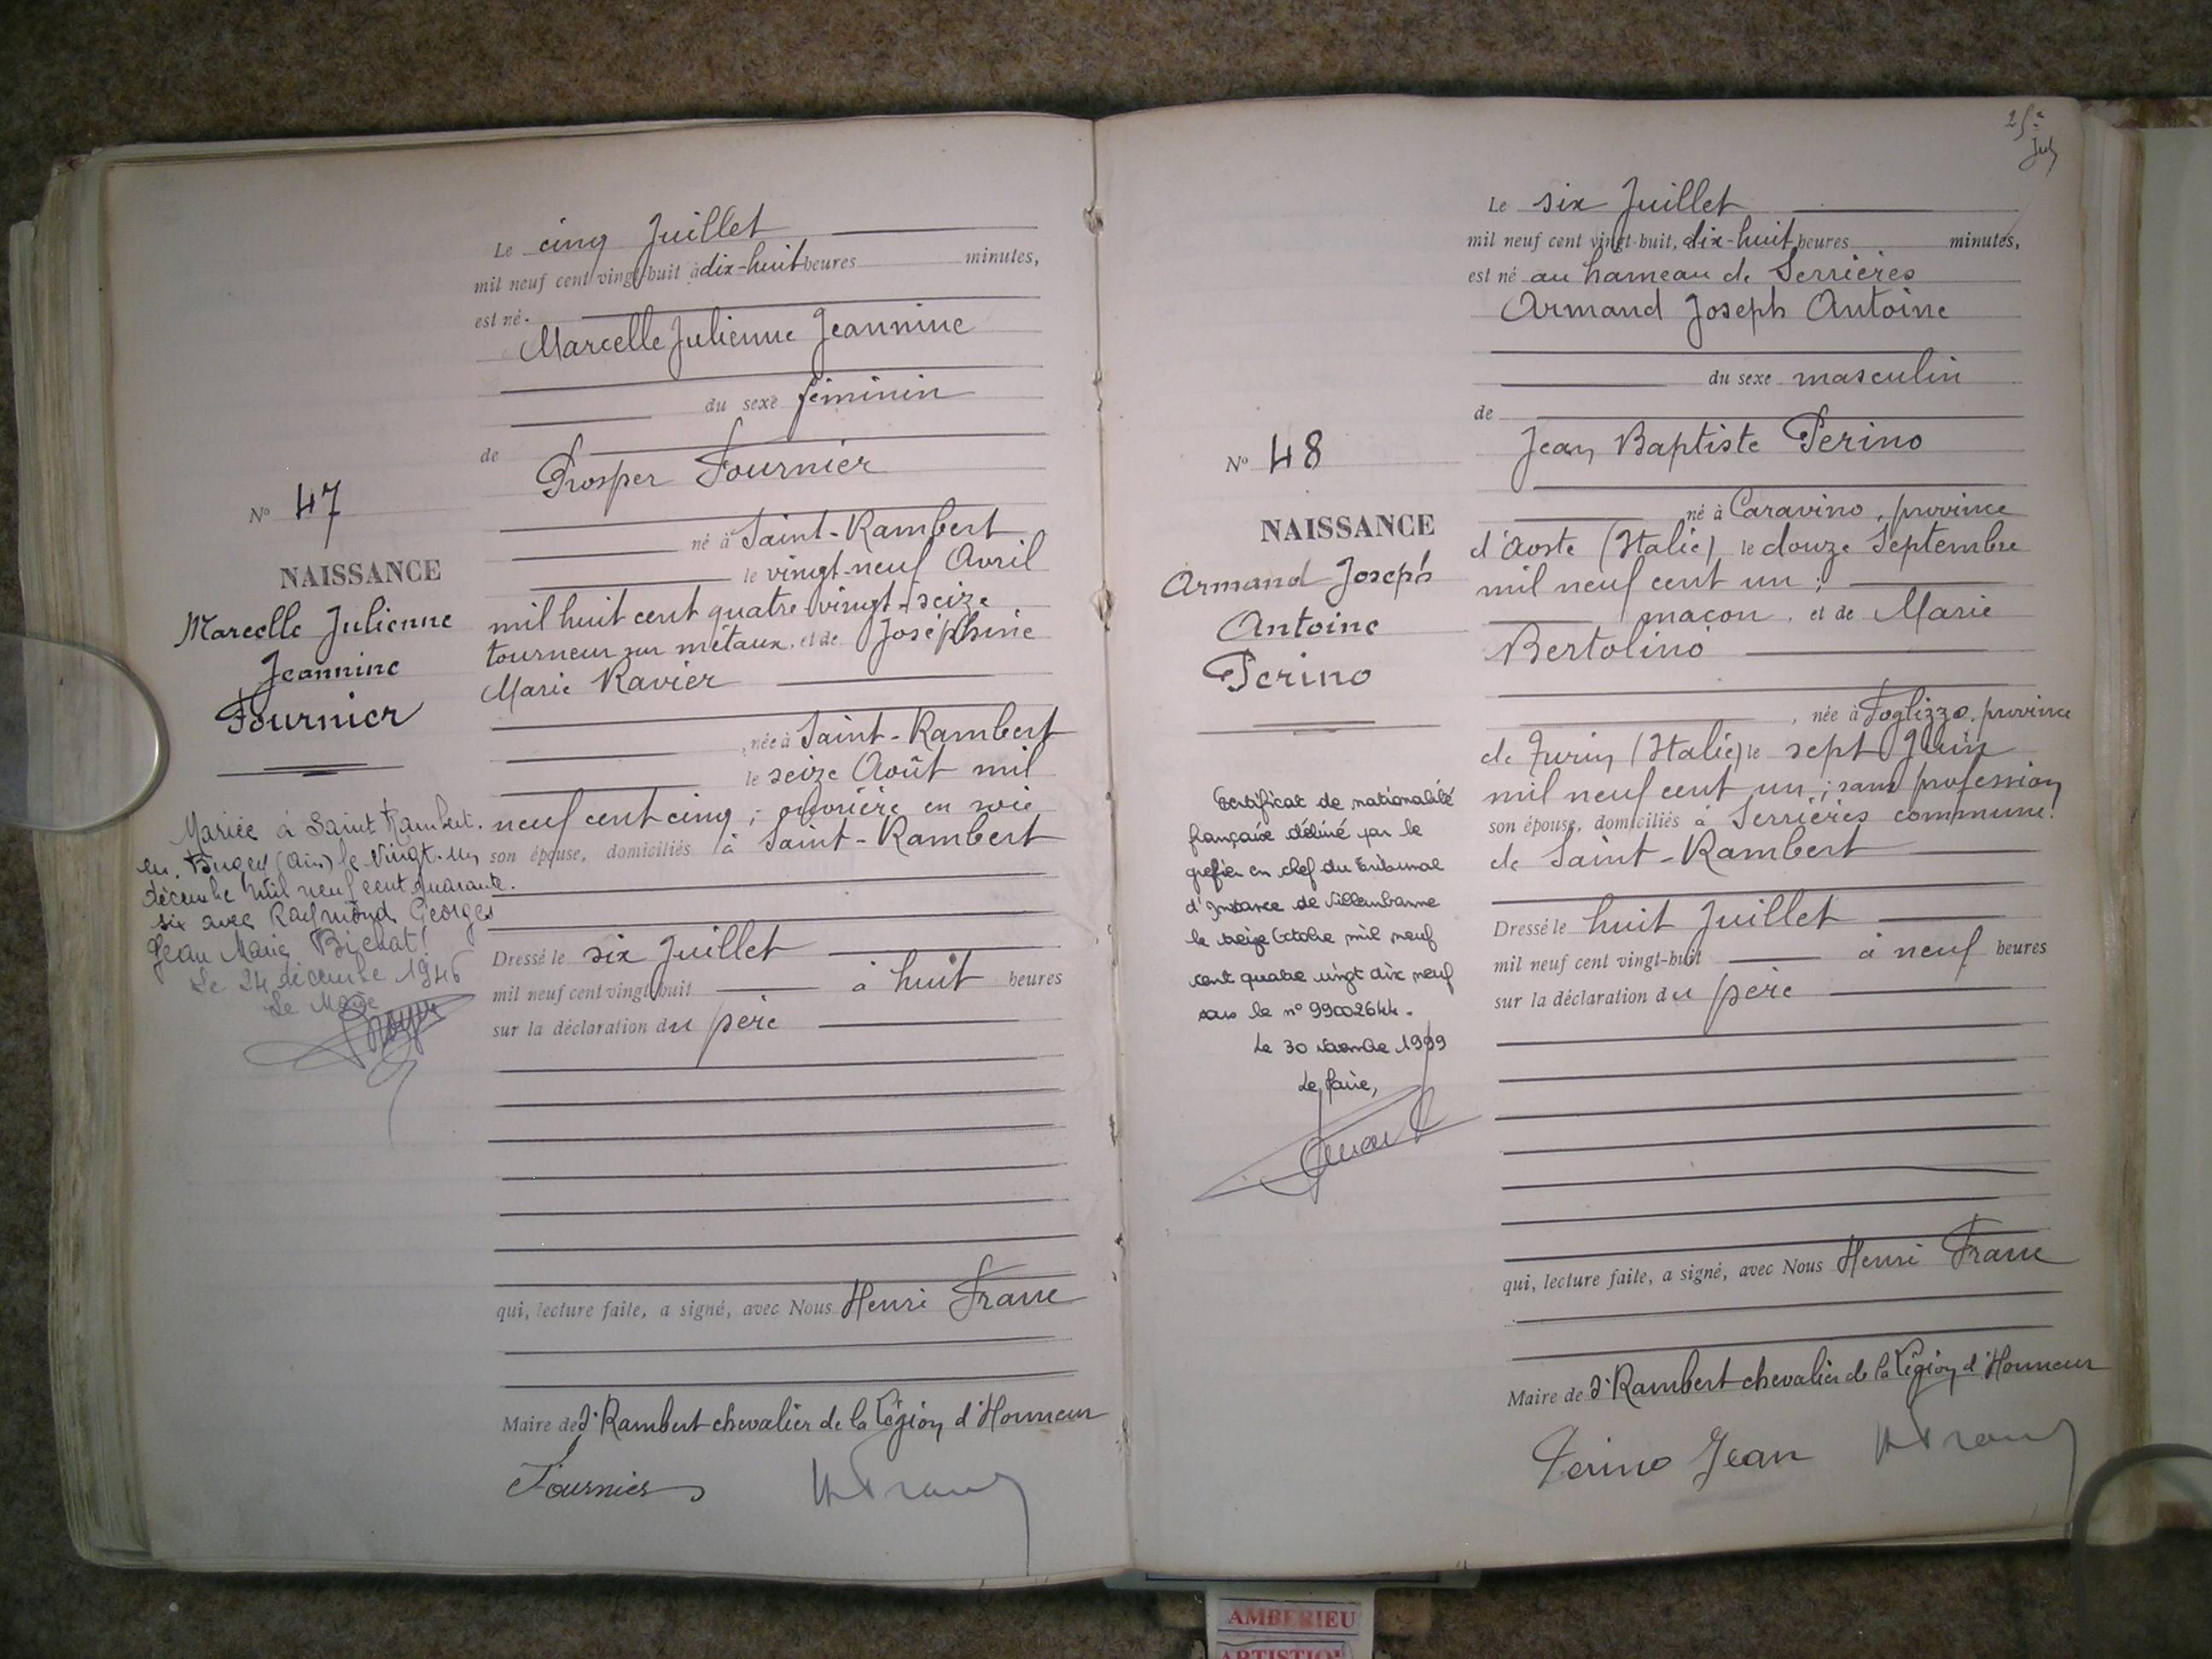 Le cinq Juillet
mil neuf cent vingt-huit à dix-huit heures minutes,
est né.
Marcelle Julienne Jeannine
du sexe féminin
de
Prosper Fournier
né à Saint-Rambert
le vingt-neuf Avril
mil huit cent quatre-vingt-seize
tourneur sur métaux, et de Joséphine
Marie Ravier
, née à Saint-Rambert
le seize Août mil
neuf cent cinq ; ouvrière en soie
son épouse, domiciliés à Saint-Rambert
Dressé le six Juillet
mil neuf cent vingt-huit à huit heures
sur la déclaration du père
qui, lecture faite, a signé, avec Nous Henri Franc
Maire de St Rambert chevalier de la Légion d'Honneur
Fournier H Franc
No 47
NAISSANCE
Marcelle Julienne
Jeannine
Fournier
Mariée à Saint Rambert.
en. Bugey (Ain) le vingt-un
décembre mil neuf cent quarante.
six avec Raymond Georges
Jean Marie Bichat.
Le 24 décembre 1946
Le Maire
25e
Jul
Le six Juillet
mil neuf cent vingt-huit, dix-huit heures minutes,
est né au hameau de Serrières
Armand Joseph Antoine
du sexe masculin
de
Jean Baptiste Perino
né à Caravino, province
d'Aoste (Italie) le douze Septembre
mil neuf cent un ;
maçon, et de Marie
Bertolino
, née à Foglizzo, province
de Turin (Italie) le sept Juin
mil neuf cent un ; sans profession
son épouse, domiciliés à Serrières commune
de Saint-Rambert
Dressé le huit Juillet
mil neuf cent vingt-huit à neuf heures
sur la déclaration du père
qui, lecture faite, a signé, avec Nous Henri Franc
Maire de St Rambert chevalier de la Légion d'Honneur
Perino Jean H Franc
No 48
NAISSANCE
Armand Joseph
Antoine
Perino
Certificat de nationalité
française délivré par le
greffier en chef du Tribunal
d'Instance de Villeurbanne
le treize Octobre mil neuf
cent quatre vingt dix neuf
sous le n° 99002644.
Le 30 novembre 1999
Le Maire,
AMBERIEU